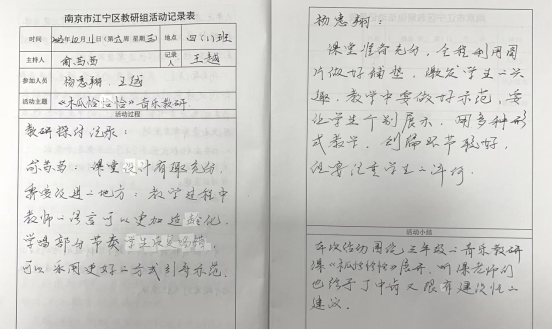 南京市江宁区教研组活动记录表
时间 2023年10月11日(第六周 星期三) 地点 四(1)班
主持人 俞茜茜 记录人 王越
参加人员 杨惠翔 王越
活动主题 《木瓜恰恰恰》音乐教研
活动过程
教研探讨记录:
俞茜茜:课堂设计有趣充分,
需要改进的地方:教学过程中
教师的语言可以更加
学唱部分节奏学生
可以采用更好的方式引导示范。
杨惠翔:
课堂准备充分,全程利用图
片做好铺垫,激发学生的兴
趣,教学中要做好示范,要
让学生个别展示,用多种形
式教学,创编环节较好,
但要注意学生的评价
活动小结
本次活动围绕五年级的音乐教研
课《木瓜恰恰恰》展开,听课老师们
也给予了中肯又很有建设性的
建议。